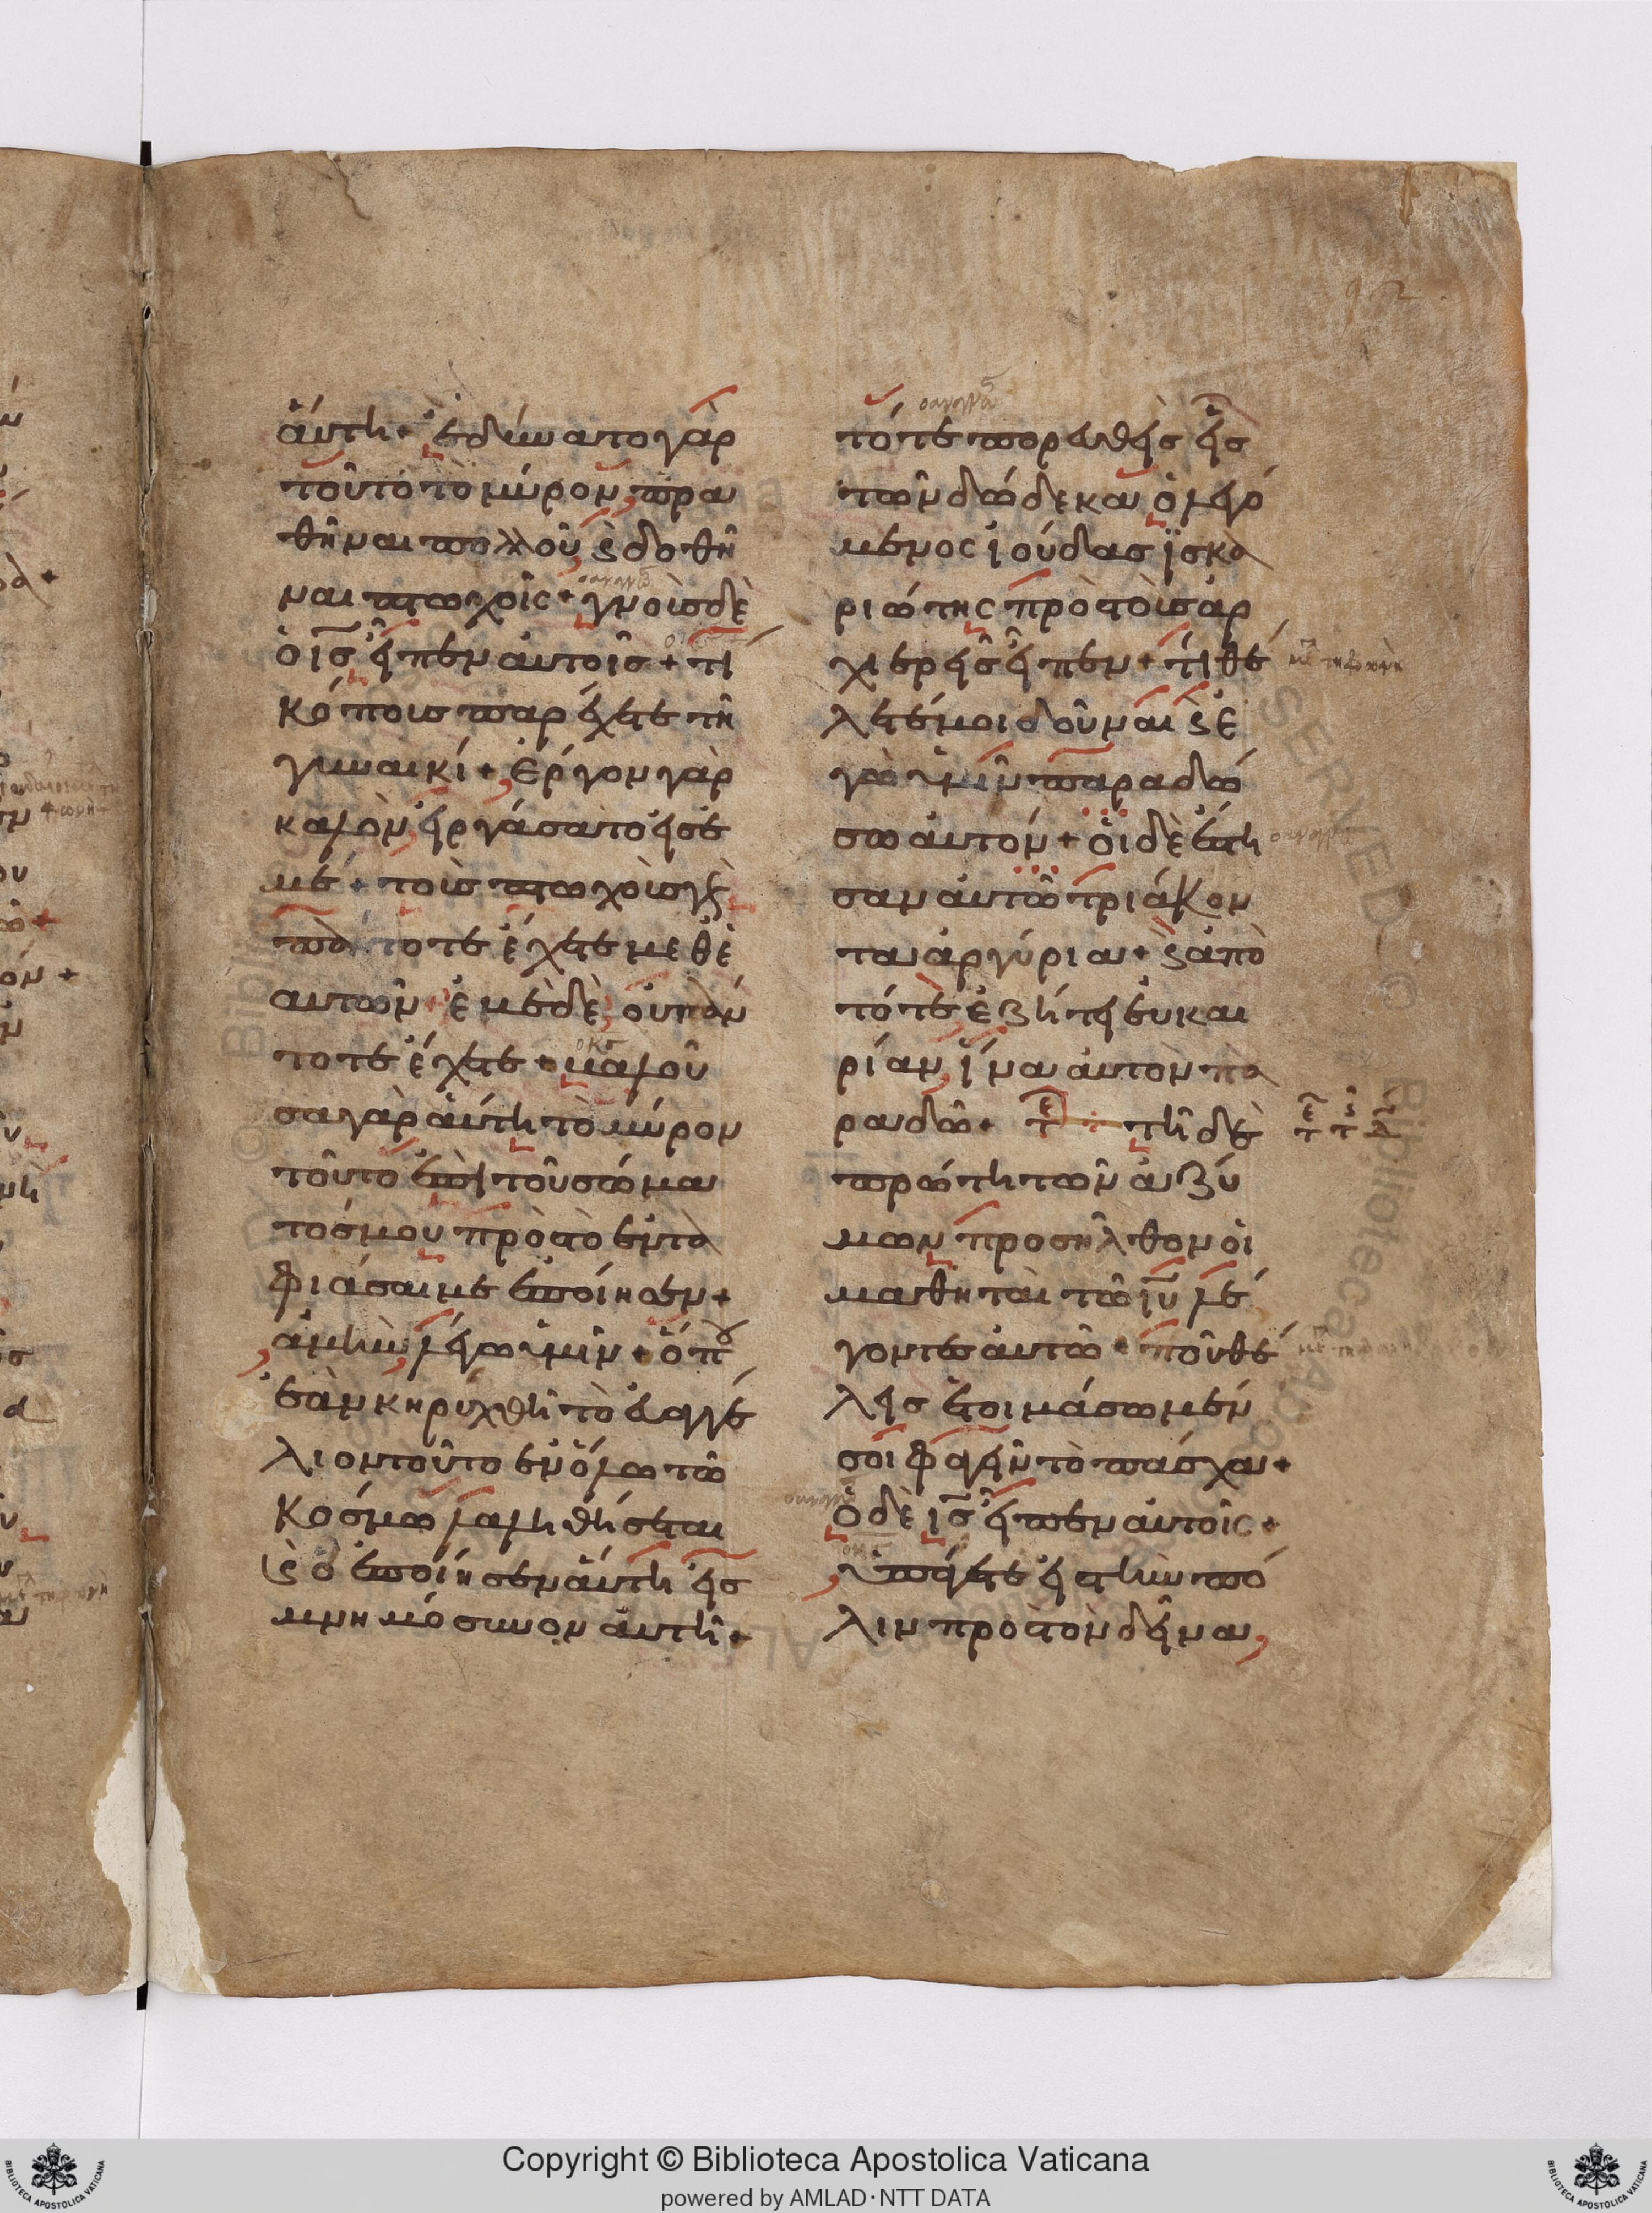 ἅυτη + ἐδύνατο γὰρ
τοῦτο τὸ μύρον πρα
θῆναι πολλοῦ ϛ δοθῆ
ναι πτωχοῖς + γνοὺσ δὲ
ὁ ισ εἶπεν ἀυτοῖσ + τί
κόπουσ παρέχετε τῆ
γυναικί + ἔργον γὰρ
καλὸν εἰργάσατο εἰσ ἐ
μέ + τοὺσ πτωχοὺσ γὰρ
πάντοτε ἔχετε μεθ ἑ
αυτῶν + ἐμὲ δὲ οὐ πάν
τοτε ἔχετε + βαλοῦ
σα γὰρ ἅυτη τὸ μύρον
τοῦτο ἐπὶ τοῦ σώμα
τόσ μου πρὸσ τὸ ἐντα
φιάσαι με ἐποίησεν +
ἀμὴν λέγω ὑμῖν + ὅπου
ἐὰν κηρυχθῆ τὸ ἐυαγγέ
λιον τοῦτο ἐν ὅλω τῶ
κόσμω λαληθήσεται
ϛ ὃ ἐποίησεν ἅυτη εἰσ
μνημόσυνον ἀυτῆς +
τότε πορευθεὶσ εἷσ
τῶν δώδεκα ὁ λεγό
μενος ἰούδασ ἰσκα
ριώτης πρὸσ τοὺσ ἀρ
χιερεῖσ εἶπεν + τί θέ
λετέ μοι δοῦναι ϛ ἐ
γὼ ὑμῖν παραδώ
σω ἀυτόν + οἱ δὲ ἔστη
σαν ἀυτῶ τριάκον
τα ἀργύρια + ϛ ἀπὸ
τότε ἐζήτει ἐυκαι
ρίαν ἵνα ἀυτὸν πα
ραδῶ + τε τῆ δὲ
πρώτη τῶν ἀζύ
μων προσῆλθον οἱ
μαθηταὶ τῶ ιυ λέ
γοντεσ ἀυτῶ + ποῦ θέ
λεισ ἑτοιμάσωμέν
σοι φαγεῖν τὸ πάσχα +
ὁ δὲ ισ εἶπεν ἀυτοῖς +
ὑπάγετε εἰσ τὴν πό
λιν πρὸσ τὸν δεῖνα
Copyright © Biblioteca Apostolica Vaticana
powered by AMLAD·NTT DATA